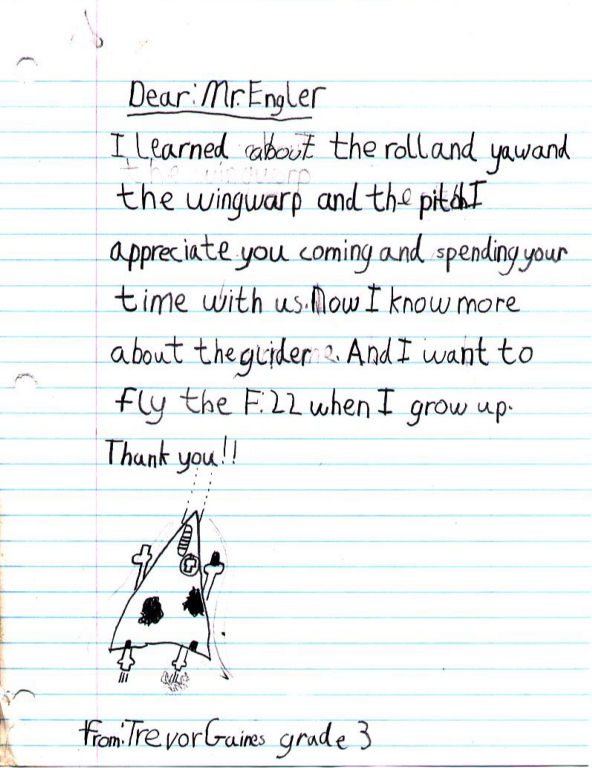 Dear: Mr. Engler
I learned about the roll and yaw and
the wingwarp and the pitch I
appreciate you coming and spending your
time with us. Now I know more
about the glider. And I want to
fly the F.22 when I grow up.
Thank you!!
from: Trevor Gaines grade 3